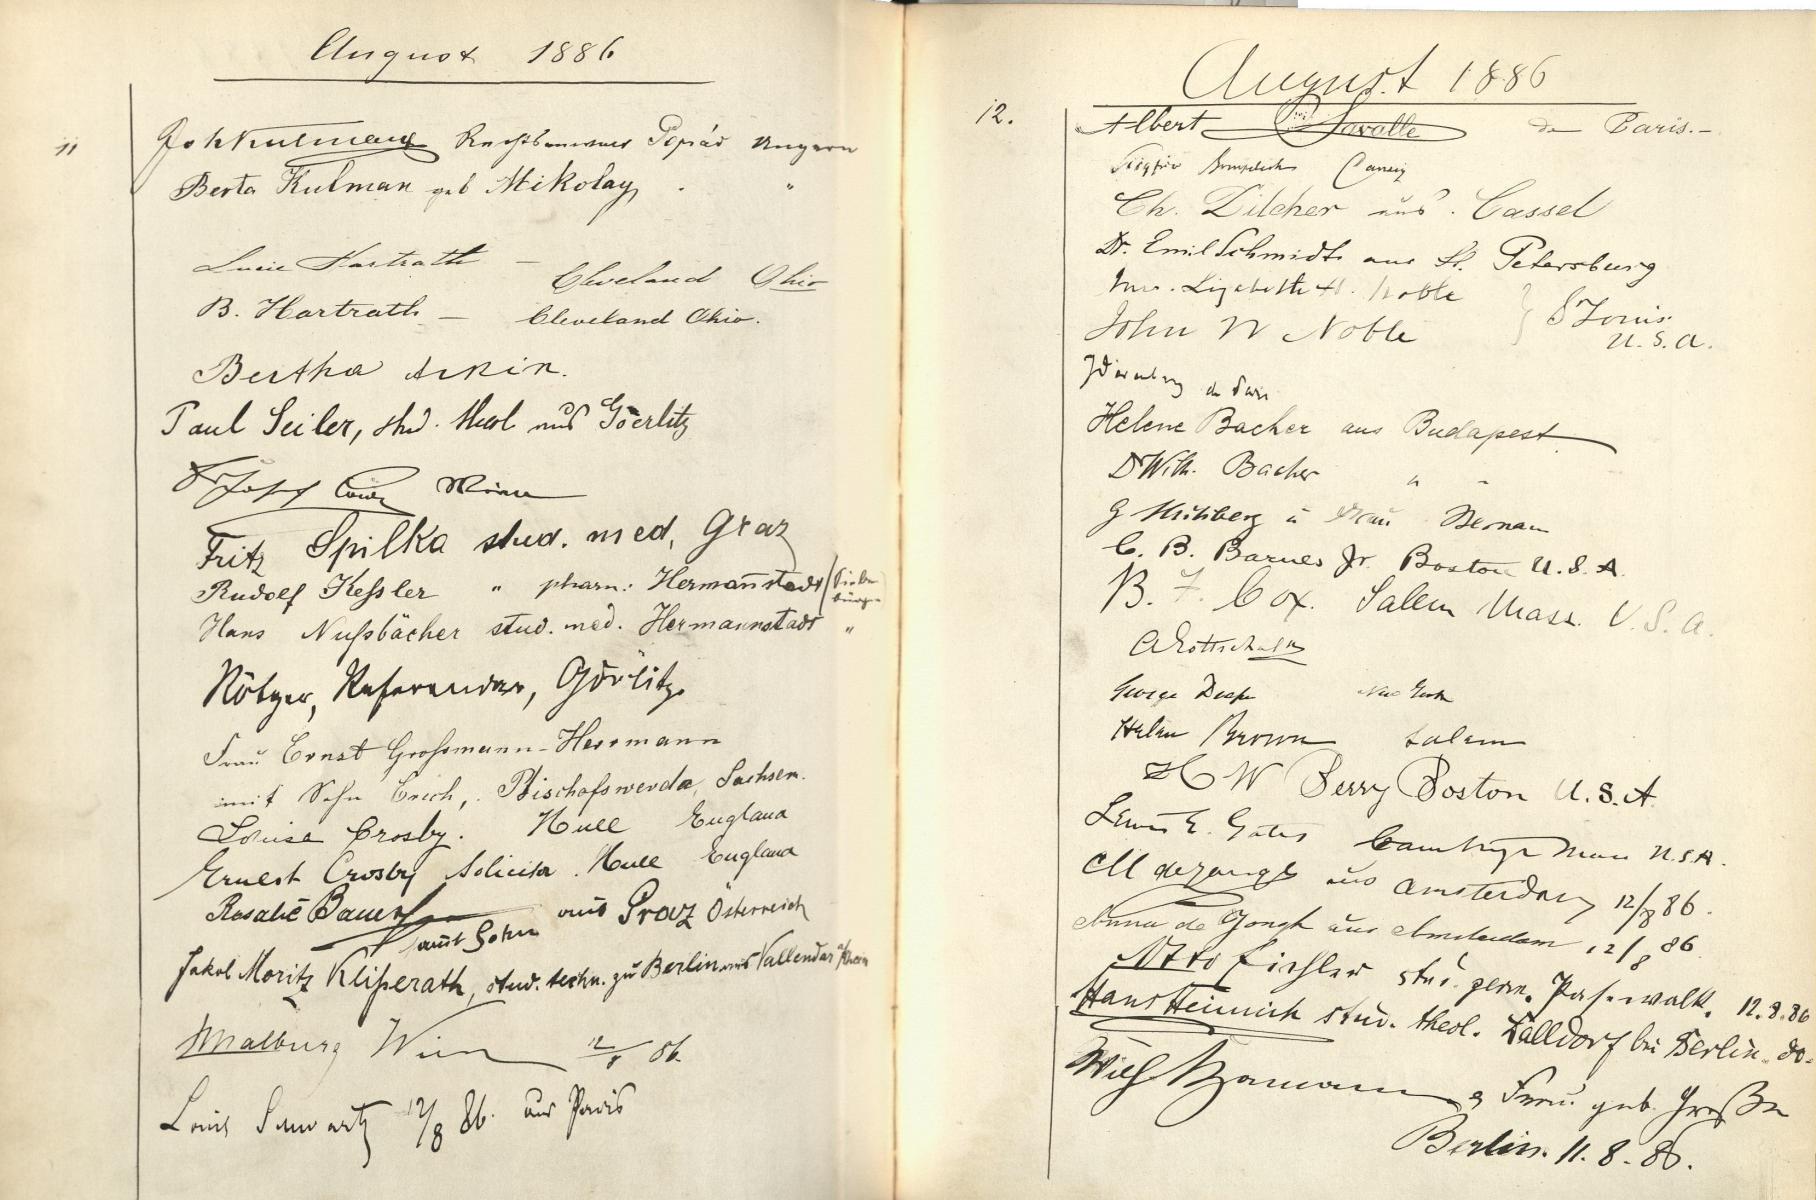 August 1886
11
Joh Kulmann Poprád Ungarn
Berta Kulman geb Mikolay . "
Lucie Hartrath – Cleveland Ohio
B. Hartrath – Cleveland Ohio.
Bertha
Paul Seiler, stud. theol. aus Goerlitz
Dr Josef Wien
Fritz Spilka stud. med, Graz
Rudolf Keßler " pharm: Hermannstadt (Sieben
bürgen)
Hans Nußbächer stud. med. Hermannstadt "
Referendar, Görlitz.
Frau Ernst Grossmann-Herrmann
mit Sohn Erich, Bischofswerda, Sachsen.
Louisa Crosby. Hull England
Ernest Crosby Solicitor. Hull England
Rosalie Bauer aus Graz Österreich
samt Sohn
Jakob Moritz Kliperath, stud. techn. zu Berlin aus Vallendar a/Rhein
Malburg Wien 12/8 86.
Louis Schwartz 12/8 86. aus Paris
August 1886
12.
Albert Lavalle de Paris.–
Danzig
Ch. Dilcher aus Cassel
Dr. Emil Schmidt aus St. Petersburg
Mrs. Lizabeth H. Noble } St Louis.
John W Noble U.S.A.
de Paris
Helene Bacher aus Budapest
Dr Wilh. Bacher " "
G u Frau Bernau
C. B. Barnes Jr. Boston U.S.A.
B. F. Cox. Salem Mass. U.S.A.
A Gottschalk
George New York
Helen Brown Salem
H W Berry Boston U.S.A
Lewis E. Gates Cambridge Mass U.S.A.
M de Jongh aus Amsterdam 12/8 86.
Anna de Jongh aus Amsterdam 12/8 86.
Otto Fischer stud. germ. Pasewalk. 12.8.86
Hans Heinrich stud. theol. Dalldorf bei Berlin. do.
Wilh & Frau geb. Große
Berlin. 11.8.86.